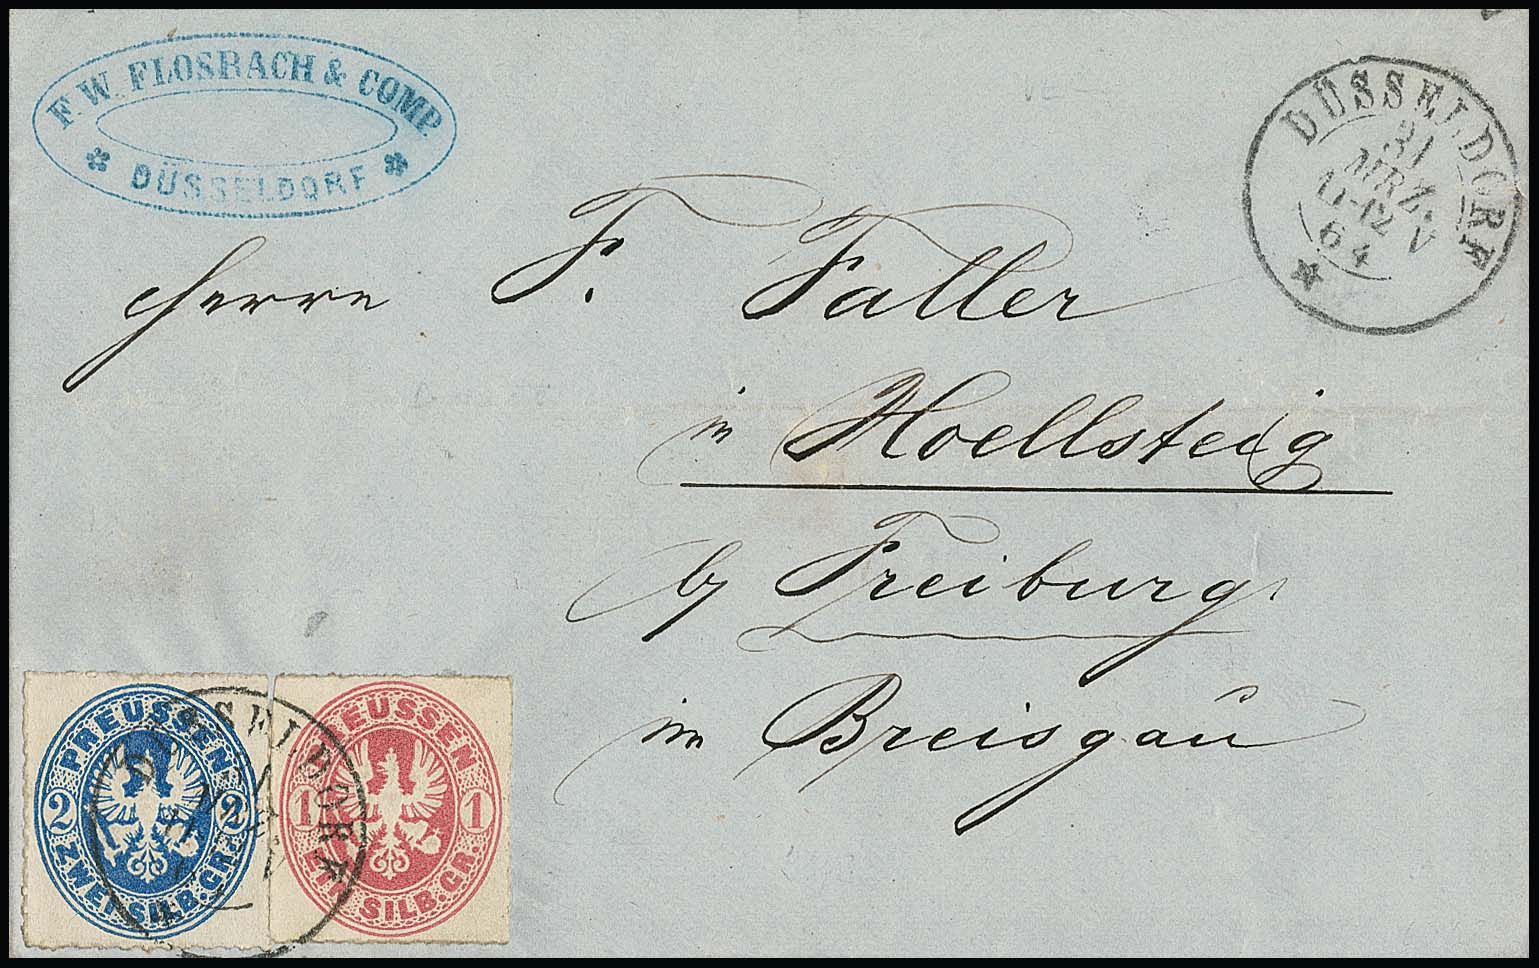 F. W. FLOSBACH & COMP.
* DÜSSELDORF *
DÜSSELDORF
31
MRZ.
11-12 V
64
*
Herrn F. Faller
in Hoellsteig
by Freiburg
im Breisgau
PREUSSEN
2 2
ZWEI SILB. GR.
PREUSSEN
1 1
EIN SILB. GR.
DÜSSELDORF